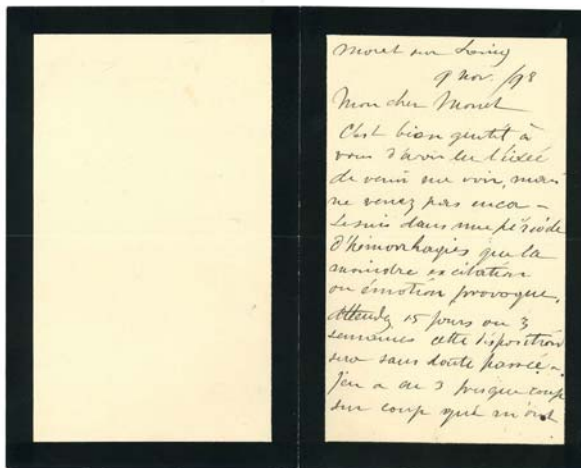 Moret sur Loing
9 Nov. /98
Mon cher Monet
C'est bien gentil à
vous d'avoir eu l'idée
de venir me voir, mais
ne venez pas encor –
Je suis dans une période
d'hémorrhagies que la
moindre excitation
ou émotion provoque.
Attendez 15 jours ou 3
semaines cette disposition
sera sans doute passée –
J'en a eu 3 presque coup
sur coup qui m'ont